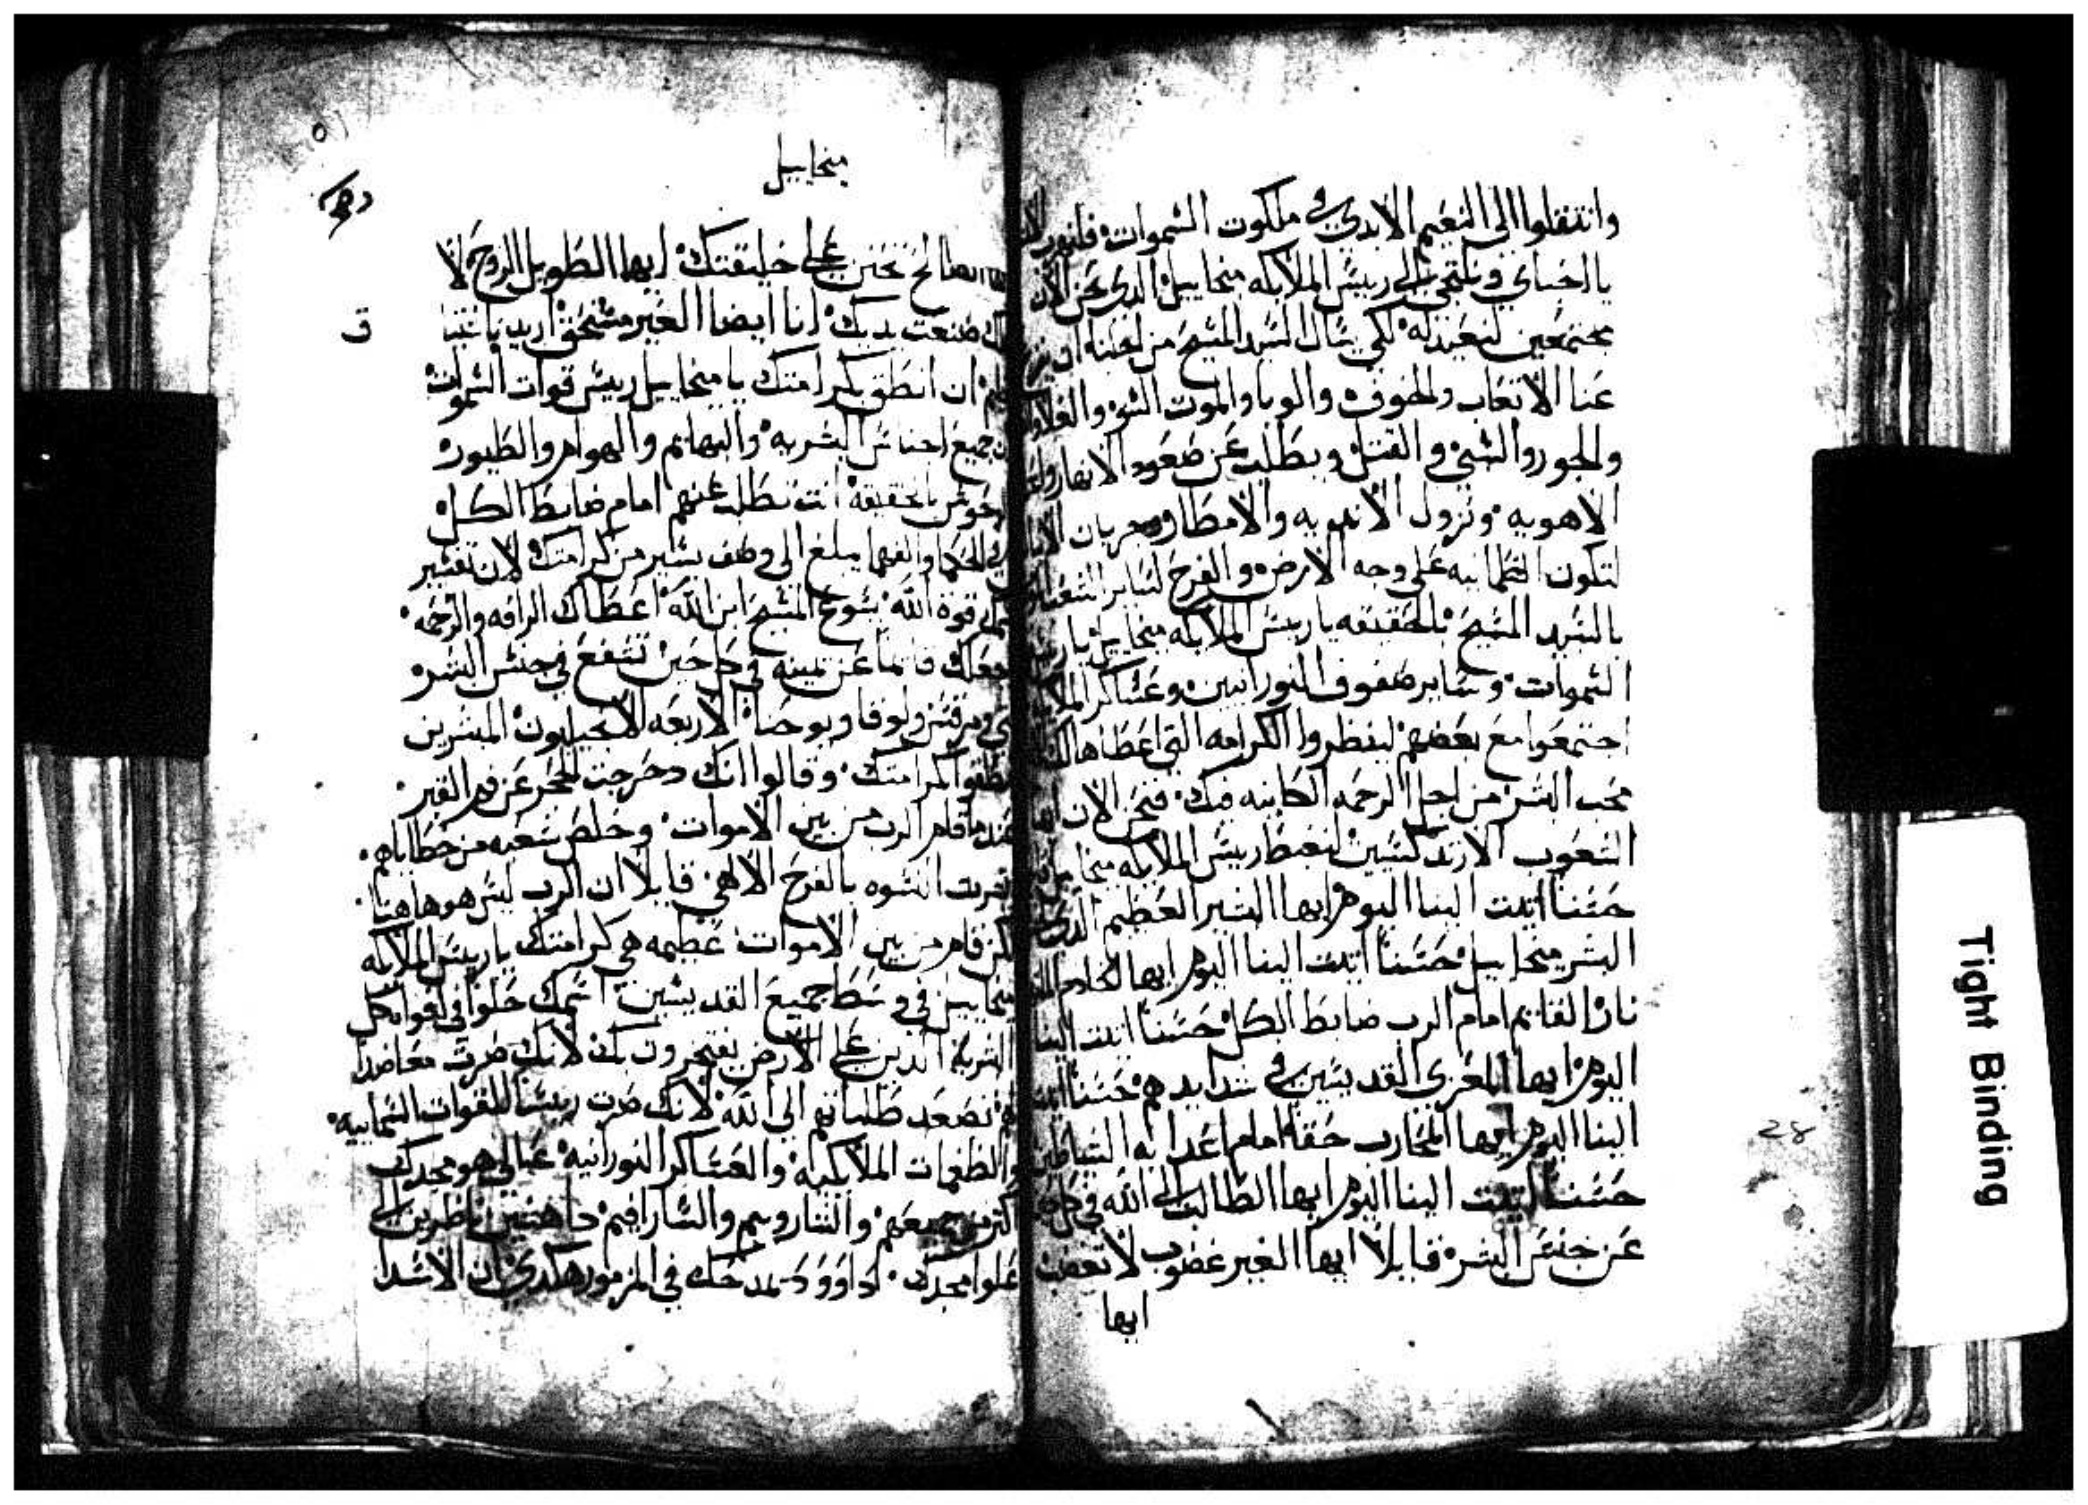 وانتقلوا الي النعيم الابدي في ملكوت السموات
يا احباي ونلتجي الي رييس الملايكه ميخاييل الدي نحن الان
مجتمعين لنعيد له لكي يسال السيد المسيح من لعنه ان
عنا الاتعاب والخوف والوبا والموت السو والغلا
والجور والسبي والقتل ويطلب عن صعود الانهار
الاهويه ونزول الانديه والامطار وجريان
لتكون الطمانيه علي وجه الارض والفرح لساير الشعب
بالسيد المسيح بالحقيقه يا رييس الملايكه ميخاييل
السموات وساير صفوف النورانيين وعساكر
اجتمعوا مع بعضهم لينظروا الكرامه التي اعطاها لك
محب البشر من اجل الرحمه الكاينه فيك فنحن الان ايها
الشعوب الارتدكسيين لنغبط رييس الملايكه ميخاييل
حسنا اتيت الينا اليوم ايها البشير العظيم
البشر ميخاييل حسنا اتيت الينا اليوم ايها الخادم
نار القايم امام الرب ضابط الكل حسنا اتيت الينا
اليوم ايها المعزي القديسين في شدايدهم حسنا اتيت
الينا اليوم ايها المحارب حقا امام اعدايه الشياطين
حسنا اتيت الينا اليوم ايها الطالب الي الله في كل
عن جنس البشر قايلا ايها الغير غضوب لا تغضب
ايها
28
ميخاييل
الصالح تحنن علي خليقتك ايها الطويل الروح لا
صنعت يديك انا ايضا الغير مستحق اريد
ق
ان انطق بكرامتك يا ميخاييل رييس قوات السموات
جميع اجناس البشريه والبهايم والهوام والطيور
بالحقيقه انت تطلب عنهم امام ضابط الكل
الحكما والفهما يبلغ الي وصف يسير من كرامتك لان تفسير
قوة الله يسوع المسيح ابن الله اعطاك الرافه والرحمه
جعلك قايما عن يمينه في كل حين تشفع في جنس البشر
ومرقس ولوقا ويوحنا الاربعه الانجيليون المبشرين
نطقوا بكرامتك وقالوا انك دحرجت الحجر عن فم القبر
عندما قام الرب من بين الاموات وخلص شعبه من خطاياهم
بشرت النسوه بالفرح الالهي قايلا ان الرب ليس هو هاهنا
لكن قام من بين الاموات عظيمه هي كرامتك يا رييس الملايكه
ميخاييل في وسط جميع القديسين اسمك حلوا في افواه كل
البشريه الدين علي الارض يفتخرون بك لانك صرت معاضدا
لهم تصعد طلباتهم الي الله لانك صرت رييسا للقوات السماييه
والطغمات الملايكيه والعساكر النورانيه عالي هو مجدك
اكتر من جميعهم والشاروبيم والسارافيم داهشين ناظرين الي
علوا مجدك داوود يمدحك في المزمور هكدي ان الاشدا
Tight Binding